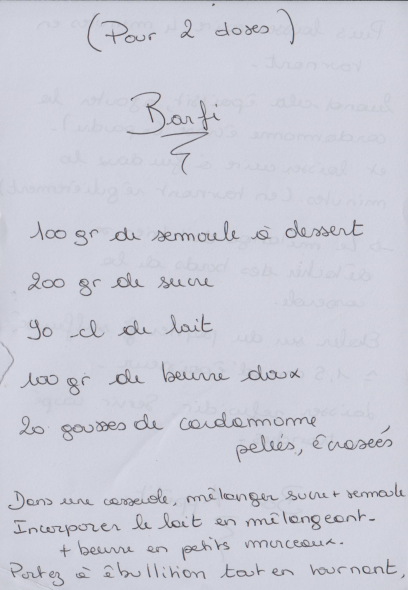 (Pour 2 doses)
Barfi
100 gr de semoule à dessert
200 gr de sucre
90 cl de lait
100 gr de beurre doux
20 gousses de cardamome
pelés, écrasées
Dans une casserole, mélanger sucre + semoule
Incorporer le lait en mélangeant.
+ beurre en petits morceaux.
Portez à ébullition tout en tournant,